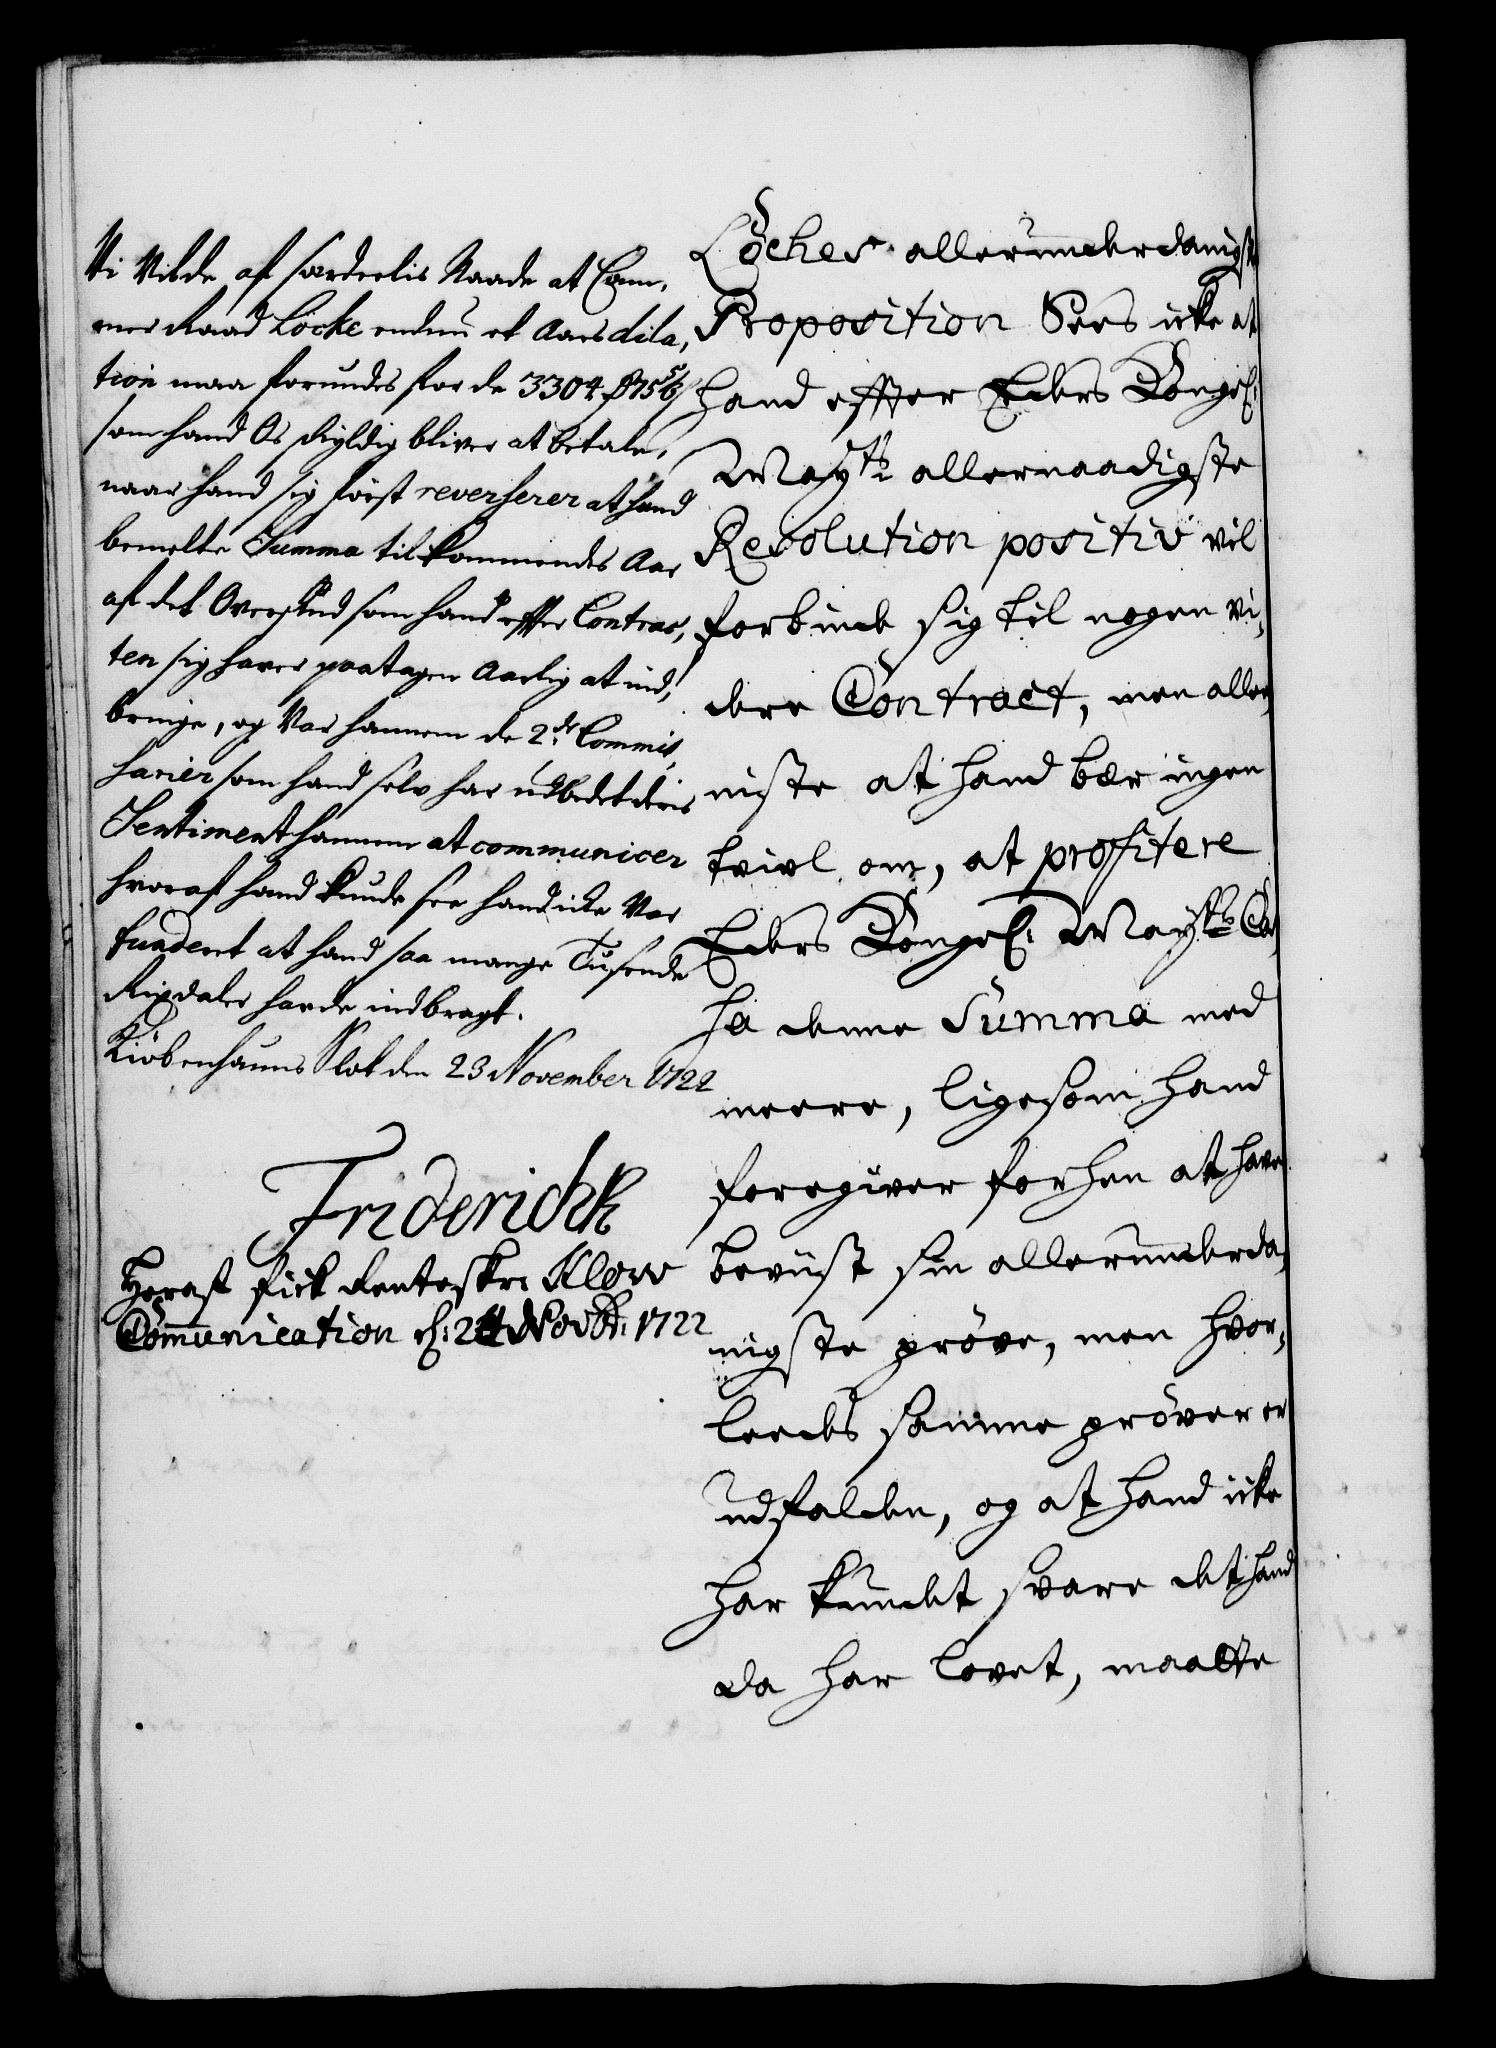 Vi Vilde af særdeelis Naade at Cam,
mer Raad Löcke endnu et Aars dila,
tion maa forundes for de 3304 β 15 5/6
som hand Os skyldig bliver at betale,
naar hand sig först reverserer at hand
bemelte Summa tilkommendes Aar
af det Overskud som hand effter Contrac,
ten sig haver paatagen Aarlig at ind,
bringe, og Var hannem de 2de Commis,
sarier som hand selv har udbedet deris
Sentiment hannem at communicer
hvoraf hand kunde see hand icke Var
funderet at hand saa mange Tusende
Rixdaler havde indbragt.
Kiöbenhauns Slot den 23 November 1722
Friderich R
Heraf fick Renteskr: Klow
Communication d: 24 Novbr: 1722
Löches allerunderdanigste
Proposition Sees icke at
hand effter Eders Kongel:
Maytz allernaadigste
Resolution positiv vil
forbinde sig til nogen vi,
dere Contract, men aller,
niste at hand bær ingen
tvivl om, at profitere
Eders Kongel: Mayts Ca,
ssa denne Summa med
meere, ligesom hand
foregiver forhen at have
beviist sin allerunderda,
nigste pröve, men hvor,
leedes samme pröver er
udfalden, og at hand icke
har kundet svare det hand
da har lovet, maatte